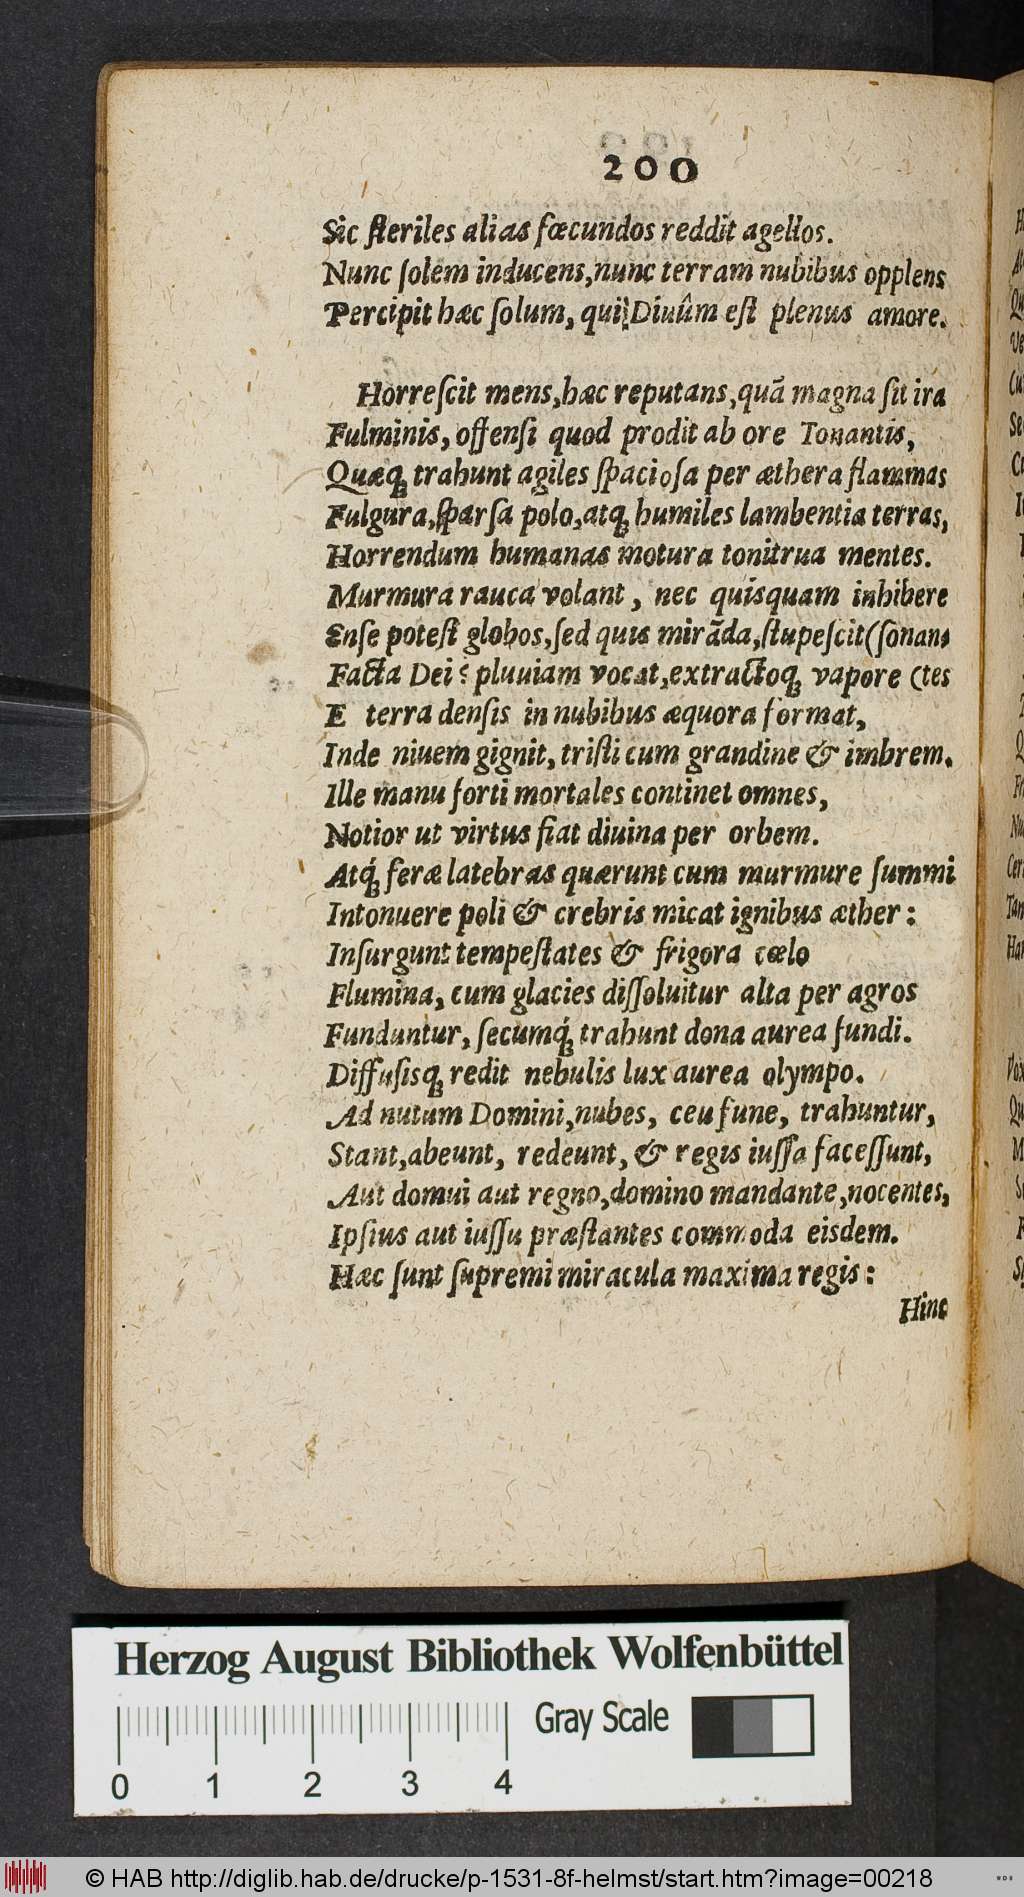 200
Sic steriles alias fœcundos reddit agellos.
Nunc ſolem inducens, nunc terram nubibus opplens
Percipit hæc ſolum, qui Diuûm eſt plenus amore.
Horreſcit mens, hæc reputans, quã magna ſit ira
Fulminis, offenſi quod prodit ab ore Tonantis,
Quæq; trahunt agiles ſpacioſa per æthera flammas
Fulgura, ſparſa polo, atq; humiles lambentia terras,
Horrendum humanas motura tonitrua mentes.
Murmura rauca volant, nec quisquam inhibere
Enſe poteſt globos, ſed quis mirãda, ſtupeſcit (ſonan
Facta Dei? pluuiam vocat, extractoq; vapore (tes
E terra denſis in nubibus æquora format,
Inde niuem gignit, triſti cum grandine & imbrem.
Ille manu forti mortales continet omnes,
Notior ut virtus fiat diuina per orbem.
Atq́; feræ latebras quærunt cum murmure ſummi
Intonuere poli & crebris micat ignibus æther:
Inſurgunt tempeſtates & frigora cœlo
Flumina, cum glacies diſſoluitur alta per agros
Funduntur, ſecumq́; trahunt dona aurea fundi.
Diffuſisq; redit nebulis lux aurea olympo.
Ad nutum Domini, nubes, ceu fune, trahuntur,
Stant, abeunt, redeunt, & regis iuſſa faceſſunt,
Aut domui aut regno, domino mandante, nocentes,
Ipſius aut iuſſu præſtantes commoda eisdem.
Hæc ſunt ſupremi miracula maxima regis:
Hinc
Herzog August Bibliothek Wolfenbüttel
Gray Scale
0 1 2 3 4
© HAB http://diglib.hab.de/drucke/p-1531-8f-helmst/start.htm?image=00218